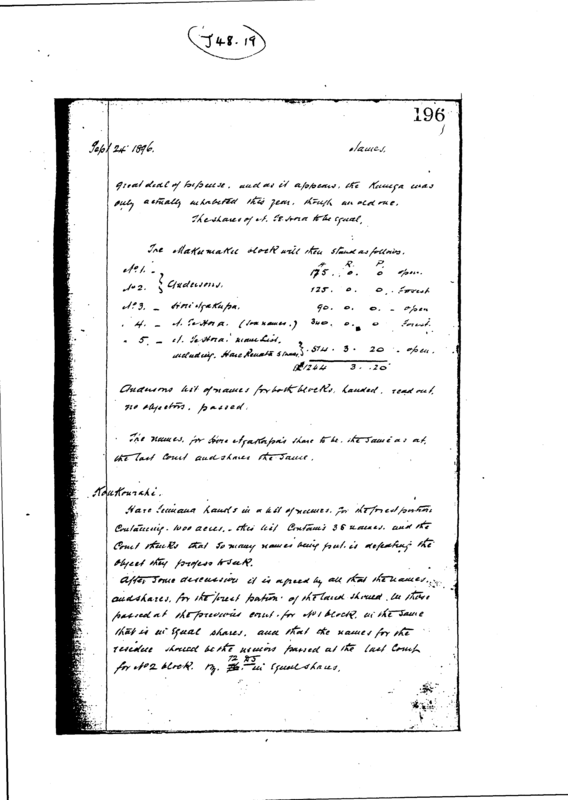 J48.19
196
Sept 24 1896. James.
great deal of expense. and as it appears. the Kumega was
only actually inhabited this year. though an old one.
The shares of A. Te Hora to be equal.
The Makumaku block will then stand as follows.
A. R. P.
No 1. -
No 2. } Andersons. 175. 0. 0 open.
125. 0. 0. Forest
No 3. - Hori Ngakapa. 90. 0. 0. - open
" 4. - A. Te Hora. (Ten names.) 340. 0. 0 Forest.
" 5. - A. Te Hora. main list,
including Hare Renata } 514. 3. 20 - open.
1244 3. 20
Andersons list of names for both blocks. handed. read out.
no objectors. passed.
The names, for Hori Ngakapa's share to be. the same as at.
the last Court and shares the same.
Hare Teimana hands in a list of names. for the forest portion
Containing. 1000 acres. - this list contains 36 names. and the
Court thinks that so many names being put. is defeating the
object they profess to seek.
After some discussion it is agreed by all that the names.
and shares, for the forest portion. of the land should. be those
passed at the previous court. for No 1 block. in the same
that is in equal shares. and that the names for the
residue should be the passed at the last Court
for No 2 block. in equal shares.